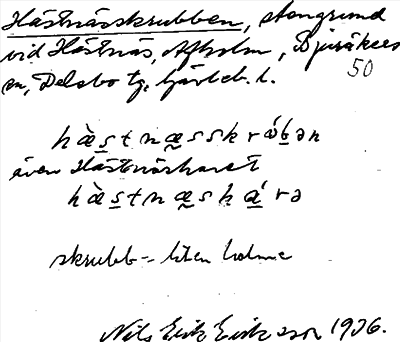 Hästnässkrubben, stengrund
vid Hästnäs, Afholm, Bjuråkers
sn, Delsbo tg, Gävleb. l.
50
hàstnæsskrabən
även Hästnäsharet
hàstnæshárə
skrubb - liten holme
Nils Erik Eriksson 1936.